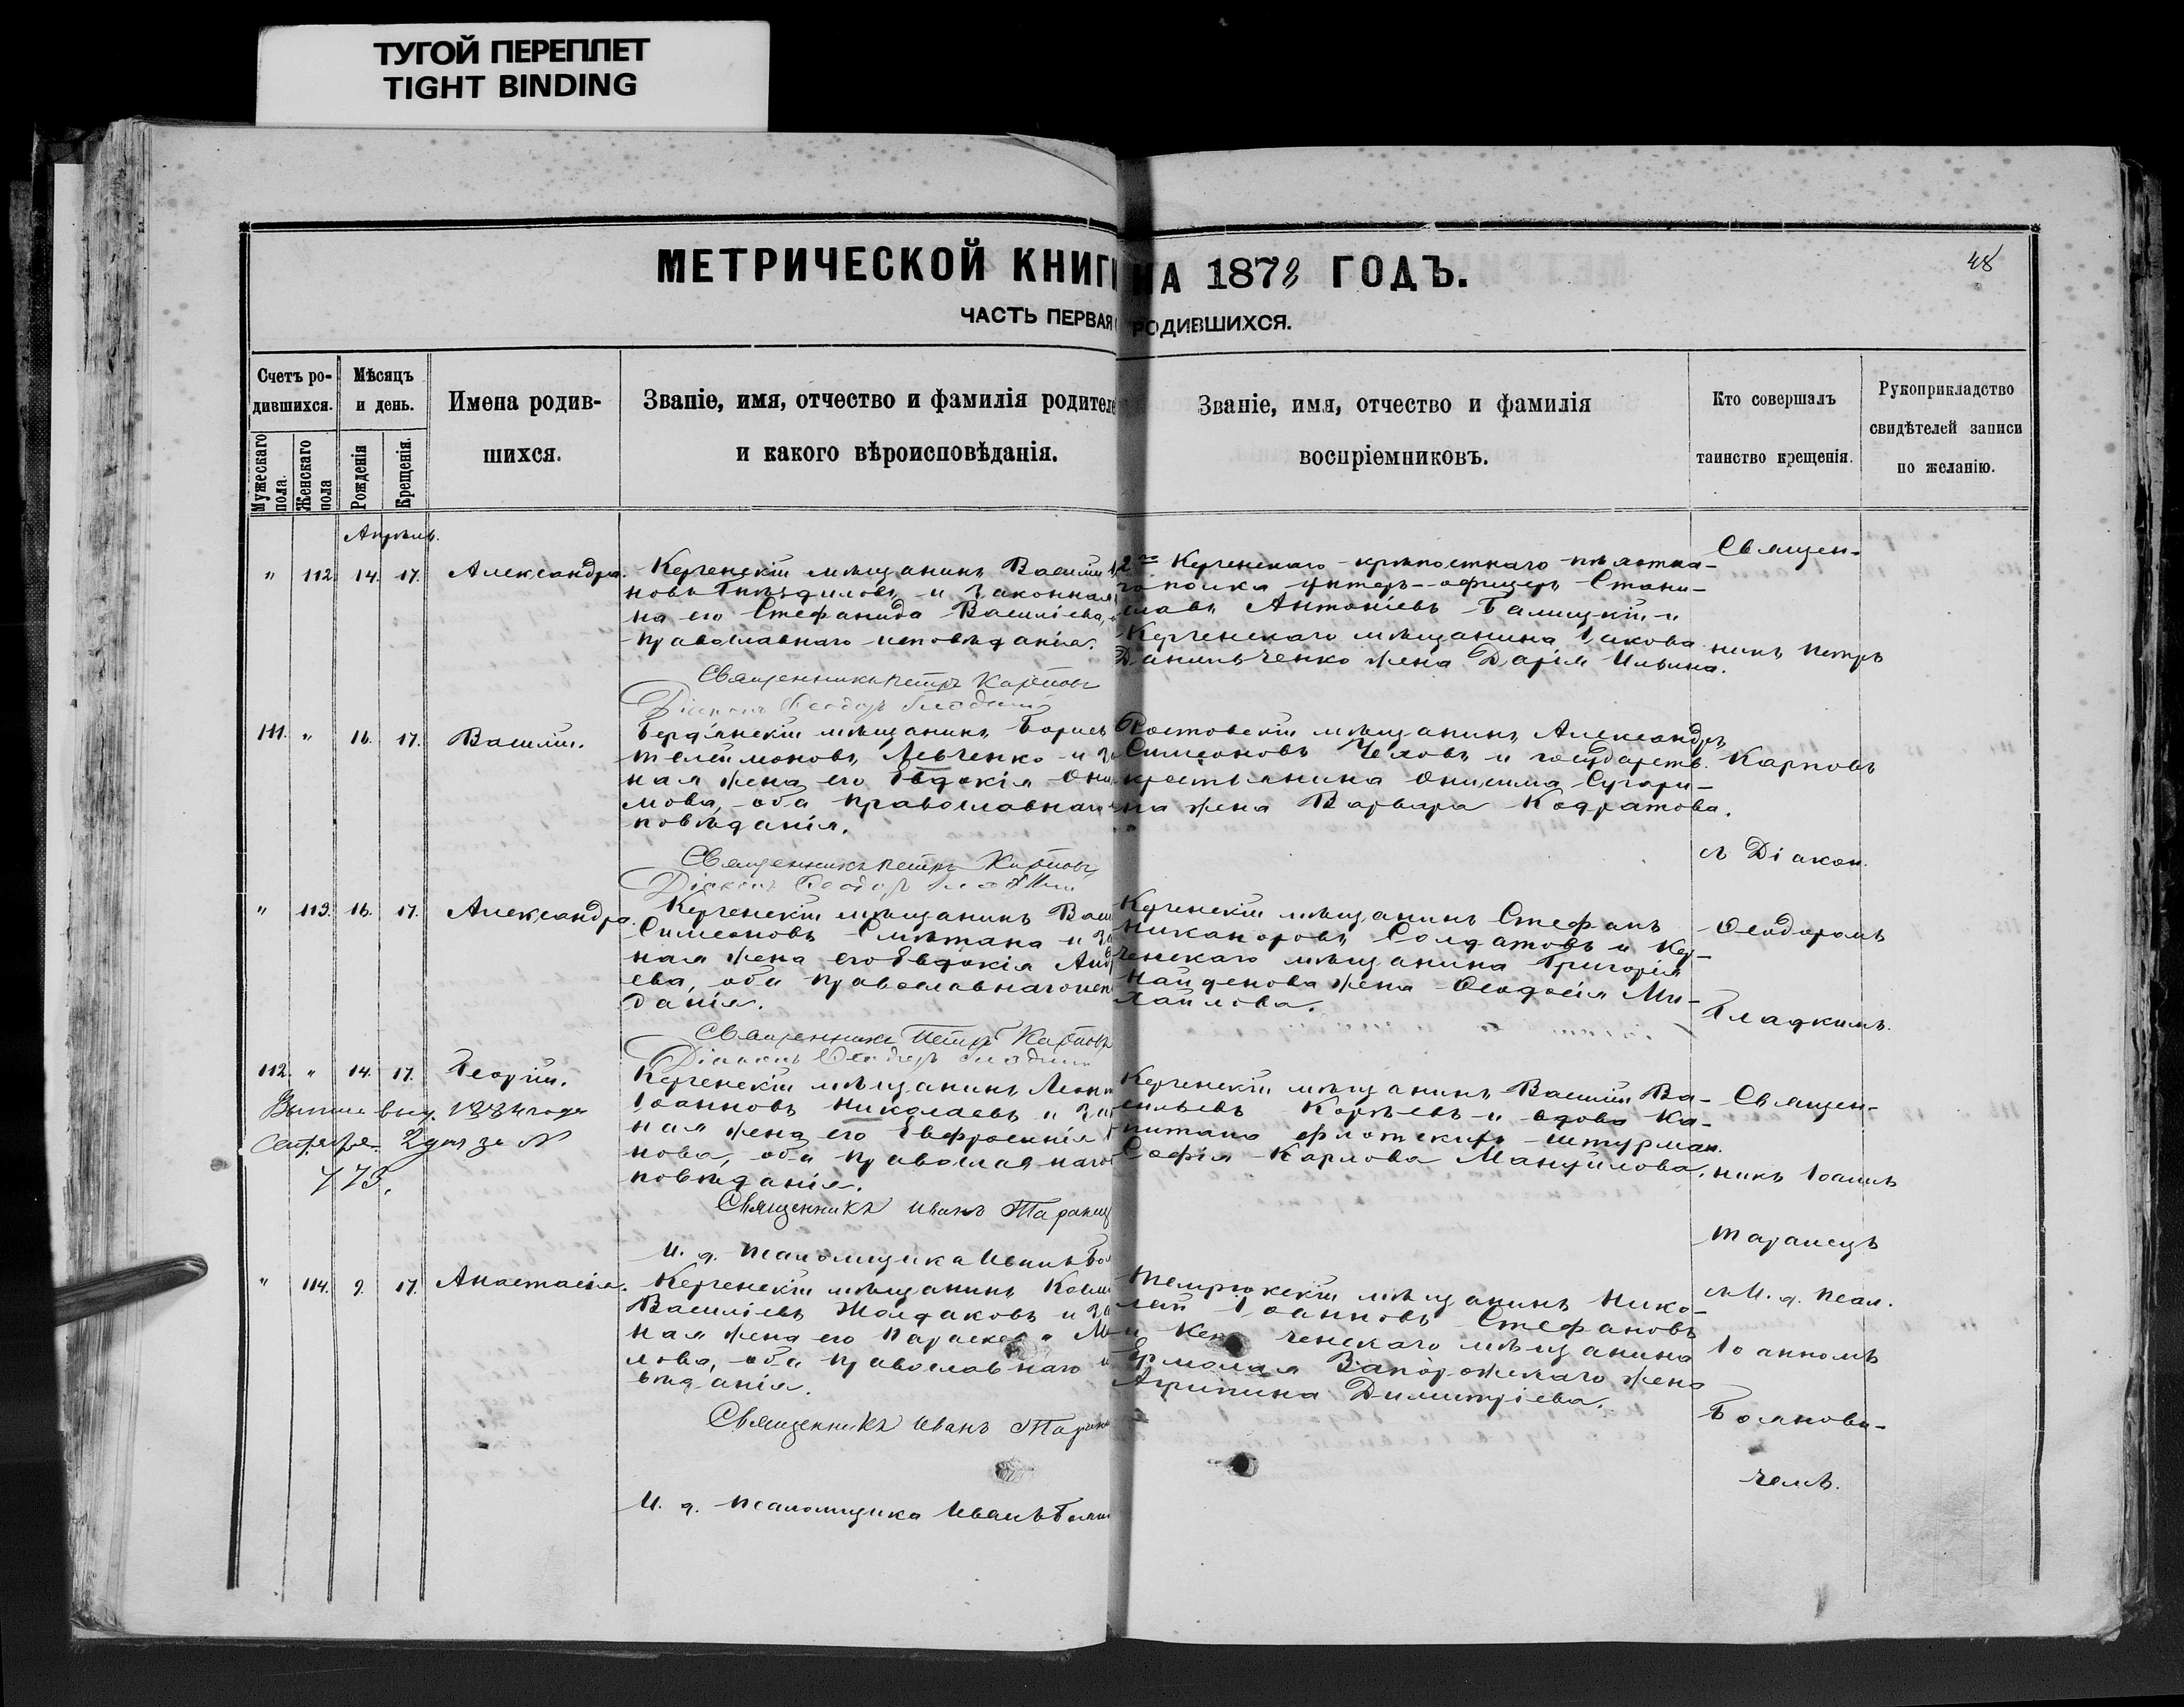 ТУГОЙ ПЕРЕПЛЕТ
TIGHT BINDING
МЕТРИЧЕСКОЙ КНИГИ НА 1878 ГОДЪ.
48
ЧАСТЬ ПЕРВАЯ РОДИВШИХСЯ.
Счетъ ро-
дившихся.
Мужескаго пола.
Женскаго пола
Мѣсяцъ
и день.
Рожденія
Крещенія.
Имена родив-
шихся.
Званіе, имя, отчество и фамилія родителе
и какого вѣроисповѣданія.
Званіе, имя, отчество и фамилія
воспріемниковъ.
Кто совершалъ
таинство крещенія.
Рукоприкладство
свидѣтелей записи
по желанію.
Апрѣль.
" 112. 14. 17. Александра.
Керченскій мѣщанинъ Василій
новъ Гнѣдиловъ и законная
на его Стефанида Василіева,
православнаго исповѣданія.
Священникъ Петръ Карповъ
Діаконъ Феодоръ Гладкій
2го Керченскаго крѣпостнаго пѣхотна-
го полка унтеръ-офицеръ Стани-
славъ Антоніевъ Галицкій и
Керченскаго мѣщанина Іакова
Данильченко жена Дарія Ильина.
Священ-
никъ Петръ
111. " 16. 17. Василій.
Бердянскій мѣщанинъ Борисъ
телеймоновъ Левченко и
ная жена его Евдокія Они
мова, оба православнаго
повѣданія.
Священникъ Петръ Карповъ
Діаконъ Феодоръ Гладкій
Ростовскій мѣщанинъ Александръ
Симеоновъ Чеховъ и государств.
крестьянина Онисима Сугари-
на жена Варвара Кодратова.
Карповъ
съ Діакон.
" 113. 16. 17. Александра.
Керченскій мѣщанинъ Васи
Симеоновъ Смѣтана и за
ная жена его Евдокія Анд
ева, оба православнаго исп
данія.
Священникъ Петръ Карповъ
Діаконъ Феодоръ Гладкій
Керченскій мѣщанинъ Стефанъ
Никаноровъ Солдатовъ и Кер-
ченскаго мѣщанина Григорія
Найденова жена Феодосія Ми-
хайлова.
Феодоромъ
Гладкимъ.
112. " 14. 17. Георгій.
1884 года
Сентября 2 дня за №
773.
Керченскій мѣщанинъ Леон
Іоанновъ Николаевъ и за
ная жена его Евфросинія
нова, оба православнаго
повѣданія.
Священникъ Иванъ Таранец
И. д. псаломщика Иванъ Бо
Керченскій мѣщанинъ Василій Ва-
сильевъ Корѣевъ и вдова Ка-
питана флотскихъ штурман.
Софія Карлова Мануйлова.
Священ-
никъ Іоаннъ
Таранецъ
" 114. 9. 17. Анастасія.
Керченскій мѣщанинъ
Василіевъ Жолдаковъ и за
ная жена его Параскева М
лова, оба православнаго и
вѣданія.
Священникъ Иванъ Таран
И. д. псаломщика Иванъ
Темрюкскій мѣщанинъ Нико-
лай Іоанновъ Стефановъ
и Керченскаго мѣщанина
Ермолая Запорожскаго жена
Агрипина Димитріева.
съ И. д. псал.
Іоанномъ
Боянови-
чемъ.